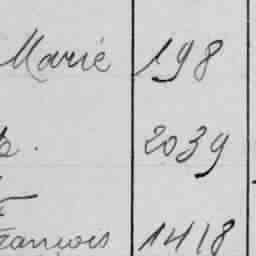 Marie 198
2039
François 1418